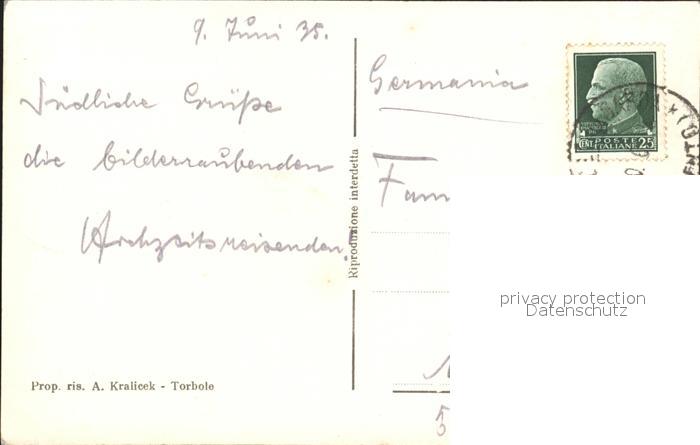 9. Juni 35.
Südliche Grüße
die bilderraubenden
Hochzeitsreisenden!
Germania
Fam
5
Riproduzione interdetta
POSTE
ITALIANE
CENT. 25
privacy protection
Datenschutz
Prop. ris. A. Kralicek - Torbole